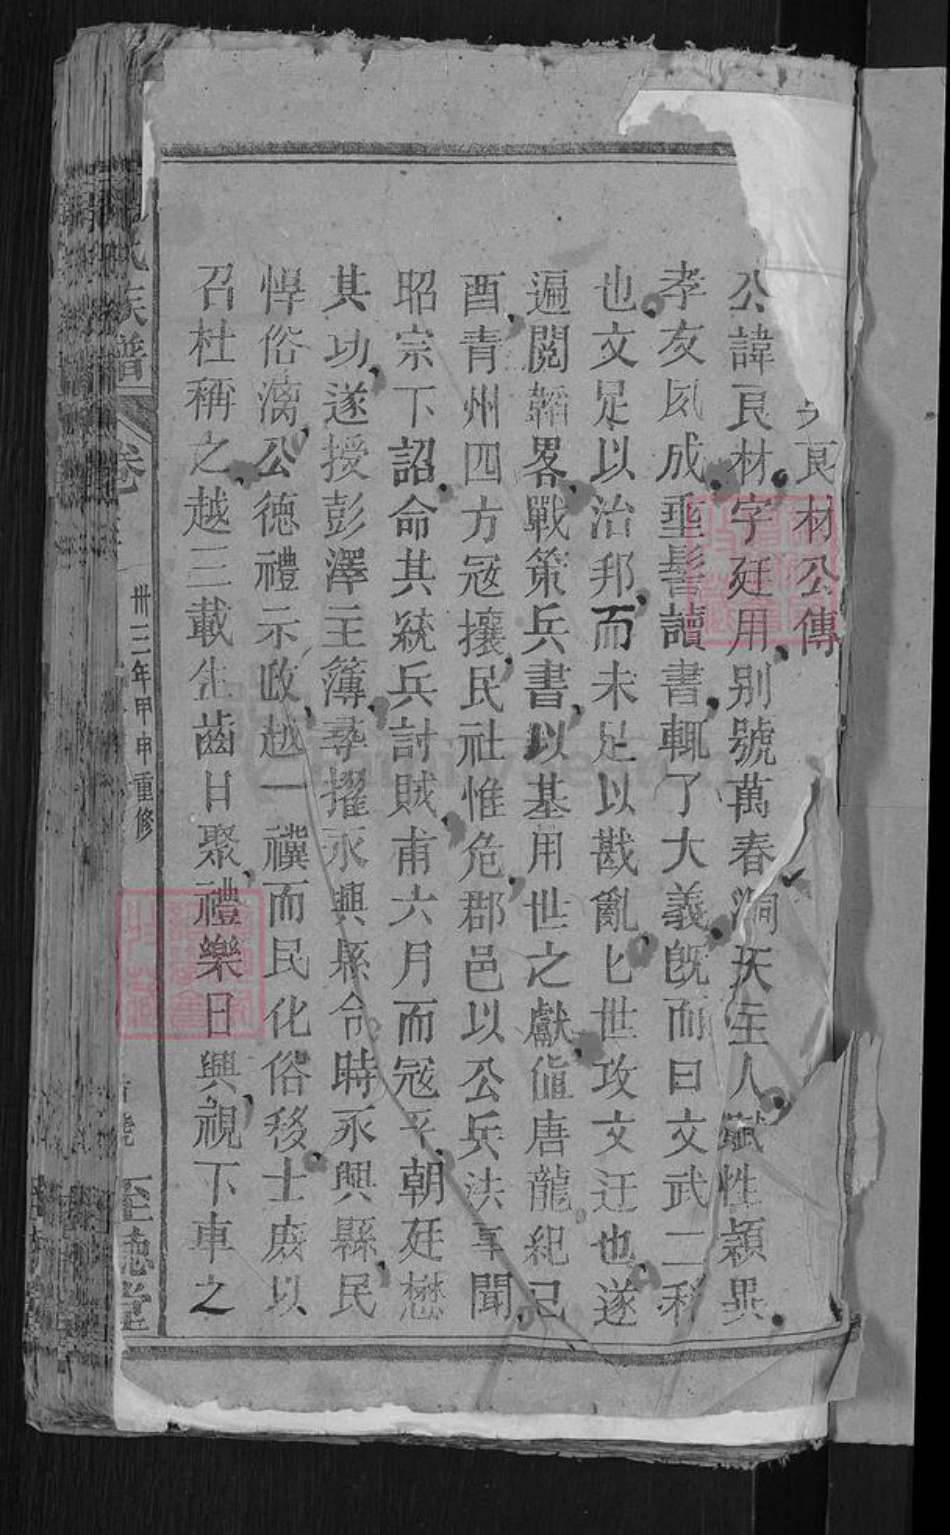 良材公傳
公諱良材字廷用别號萬春洞天主人賦性穎異
孝友夙成垂髫讀書輒了大義旣而曰文武二科
也文足以治邦而未足以戡亂匕世攻文迂也遂
遍閱韜畧戰策兵書以基用世之獻值唐龍紀己
酉青州四方寇攘民社惟危郡邑以公兵法事聞
昭宗下詔命其統兵討賊甫六月而寇平朝廷懋
其功遂授彭澤主簿尋擢永興縣令時永興縣民
悍俗漓公德禮示政越一禩而民化俗移士庻以
召杜稱之越三載生齒日聚禮樂日興視下車之
氏族譜
卷
卅三年甲申重修
至德堂